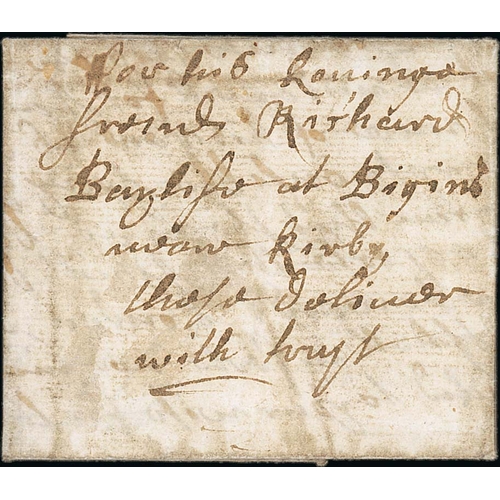 ffor his Lovinge
freind Richard
Baylife at Bigins
neare Kirby
these deliuer
with trust